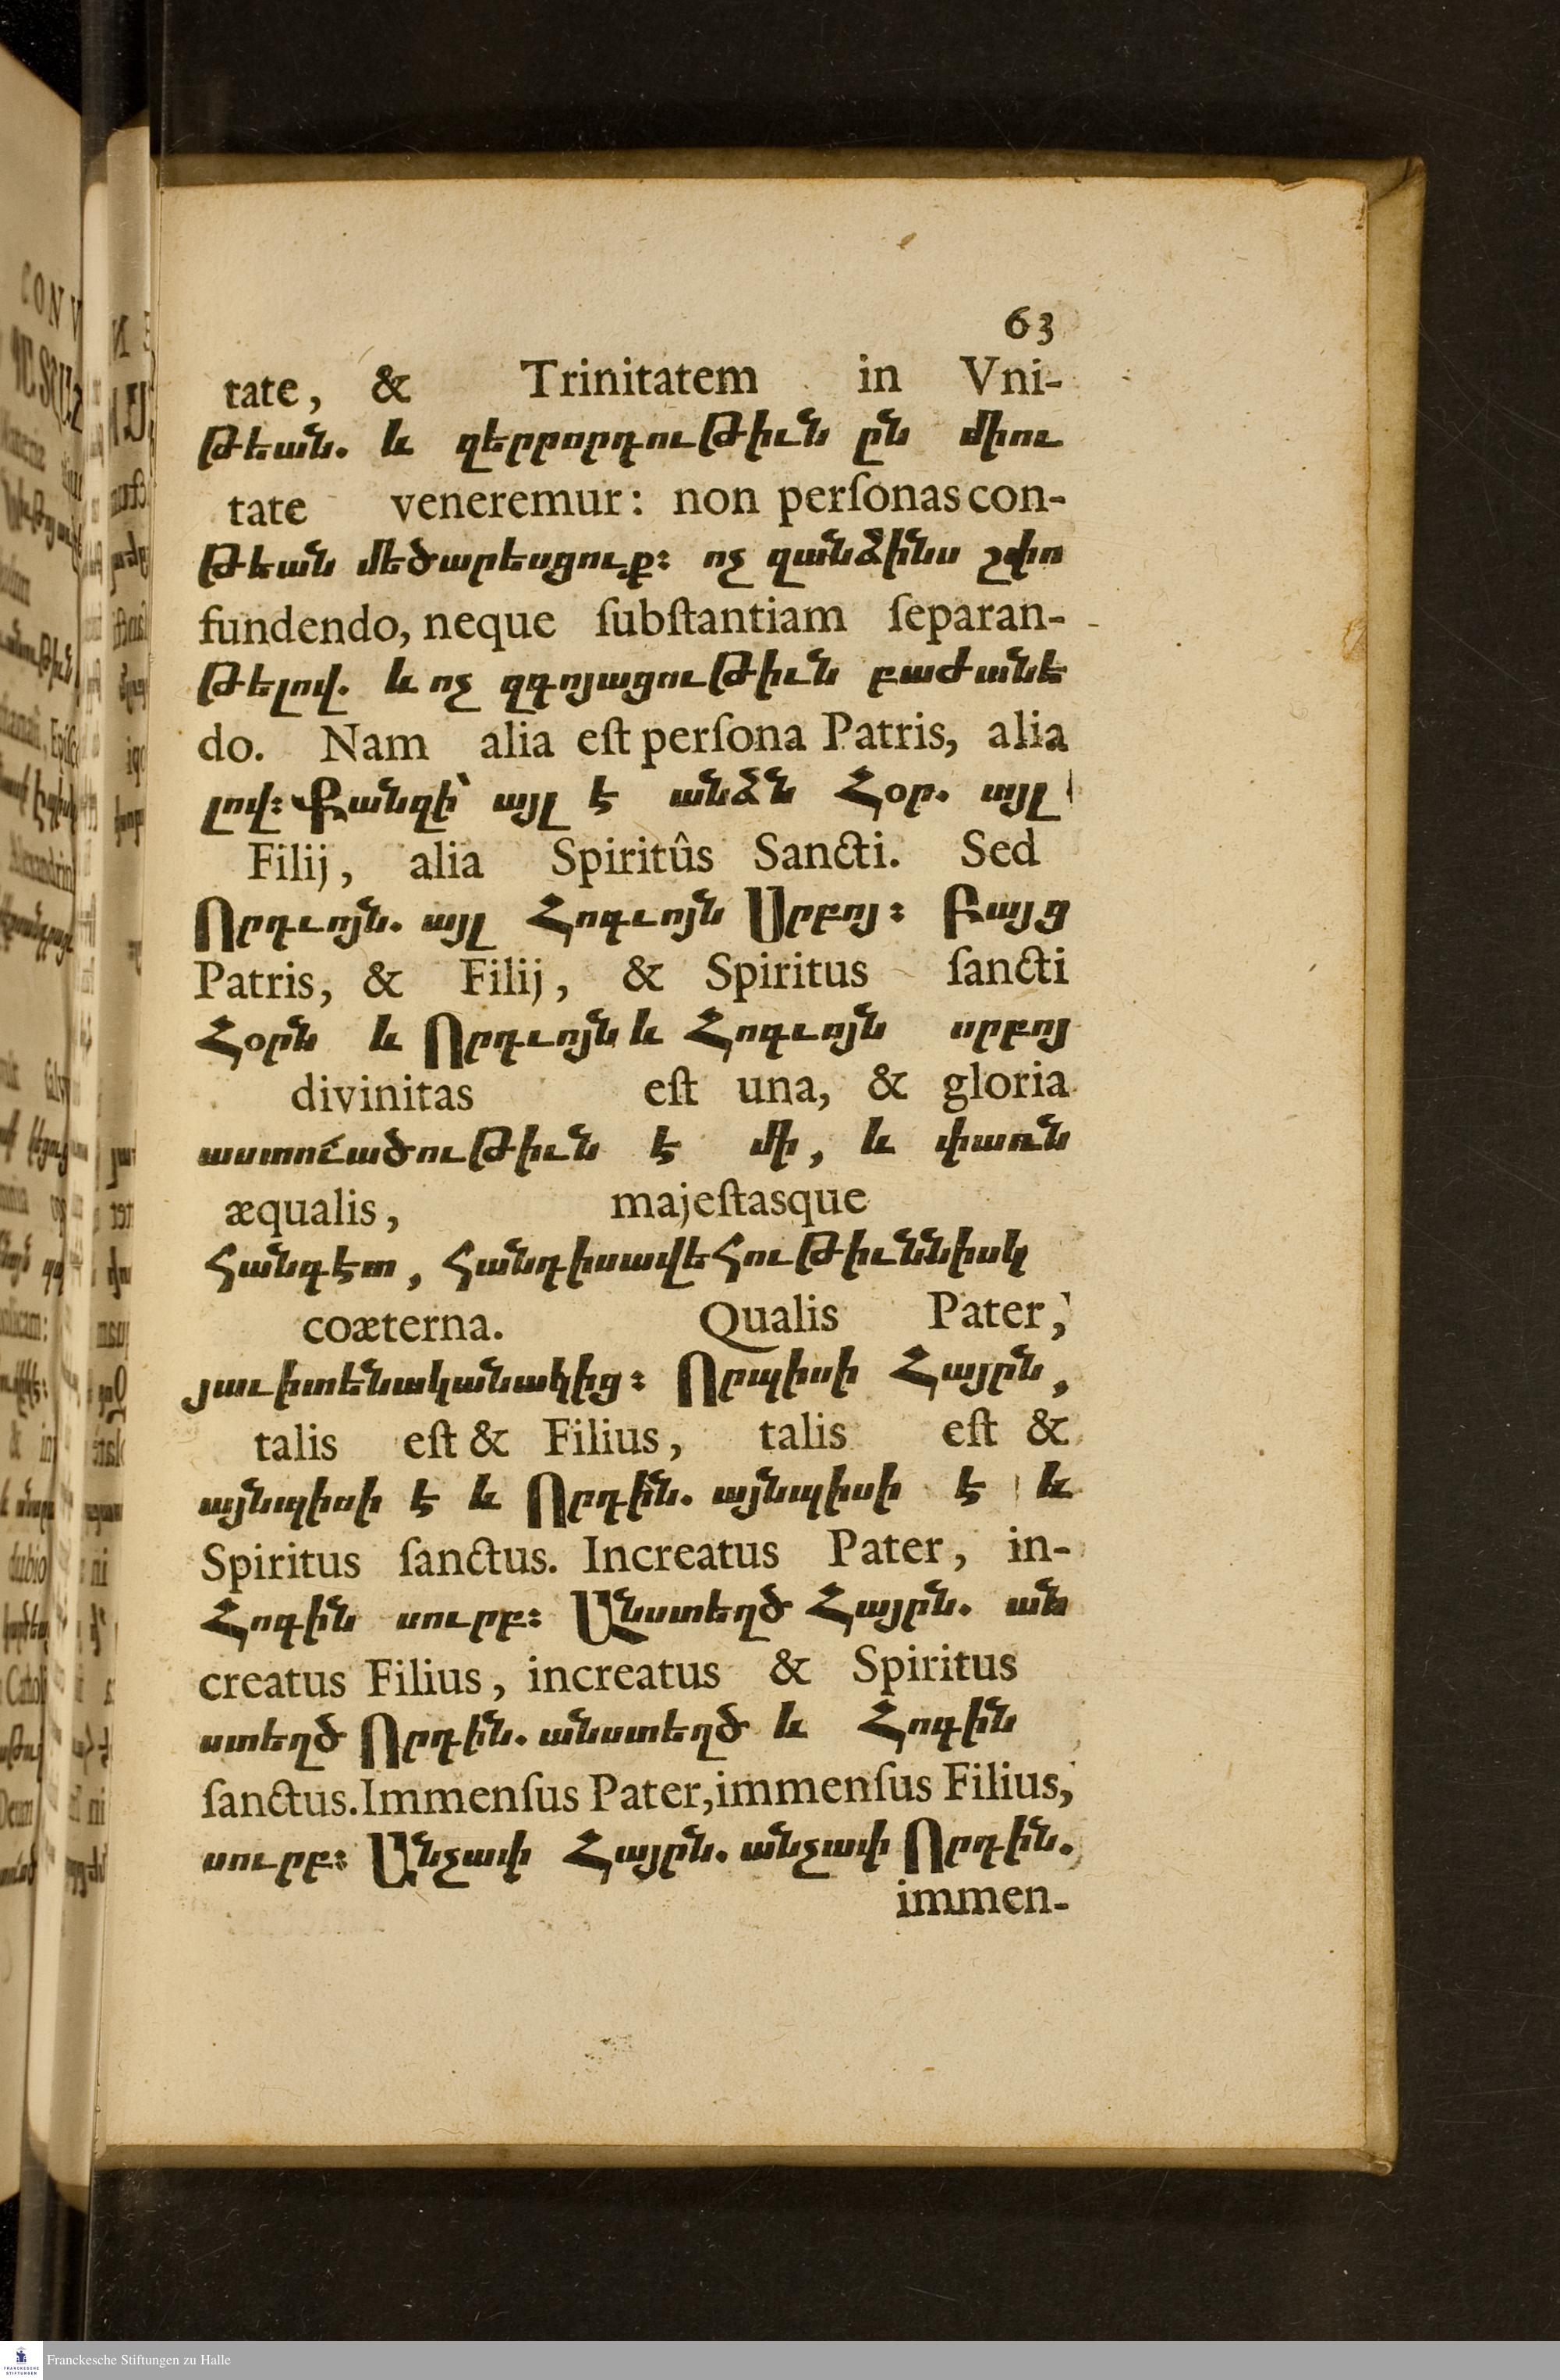 63
tate, & Trinitatem in Vni-
թեան. և զերրորդութիւն ըն միու
tate veneremur: non perſonas con-
թեան մեծարեսցուք։ ոչ զանձինս շփո
fundendo, neque ſubſtantiam ſeparan-
թելով. և ոչ զգոյացութիւն բաժանե
do. Nam alia eſt perſona Patris, alia
լով։ Քանզի՝ այլ է անձն Հօր. այլ
Filij, alia Spiritûs Sancti. Sed
Որդւոյն. այլ Հոգւոյն Սրբոյ։ Բայց
Patris, & Filij, & Spiritus ſancti
Հօրն և Որդւոյն և Հոգւոյն սրբոյ
divinitas eſt una, & gloria
աստուածութիւն է մի, և փառն
æqualis, majeſtasque
հանգէտ, հանդիսավեհութիւննիսկ
coæterna. Qualis Pater,
յաւիտենականակից։ Որպիսի Հայրն,
talis eſt & Filius, talis eſt &
այնպիսի է և Որդին. այնպիսի է և
Spiritus ſanctus. Increatus Pater, in-
Հոգին սուրբ։ Անստեղծ Հայրն. ան
creatus Filius, increatus & Spiritus
ստեղծ Որդին. անստեղծ և Հոգին
ſanctus. Immenſus Pater, immenſus Filius,
սուրբ։ Անչափ Հայրն. անչափ Որդին.
immen-
Franckesche Stiftungen zu Halle